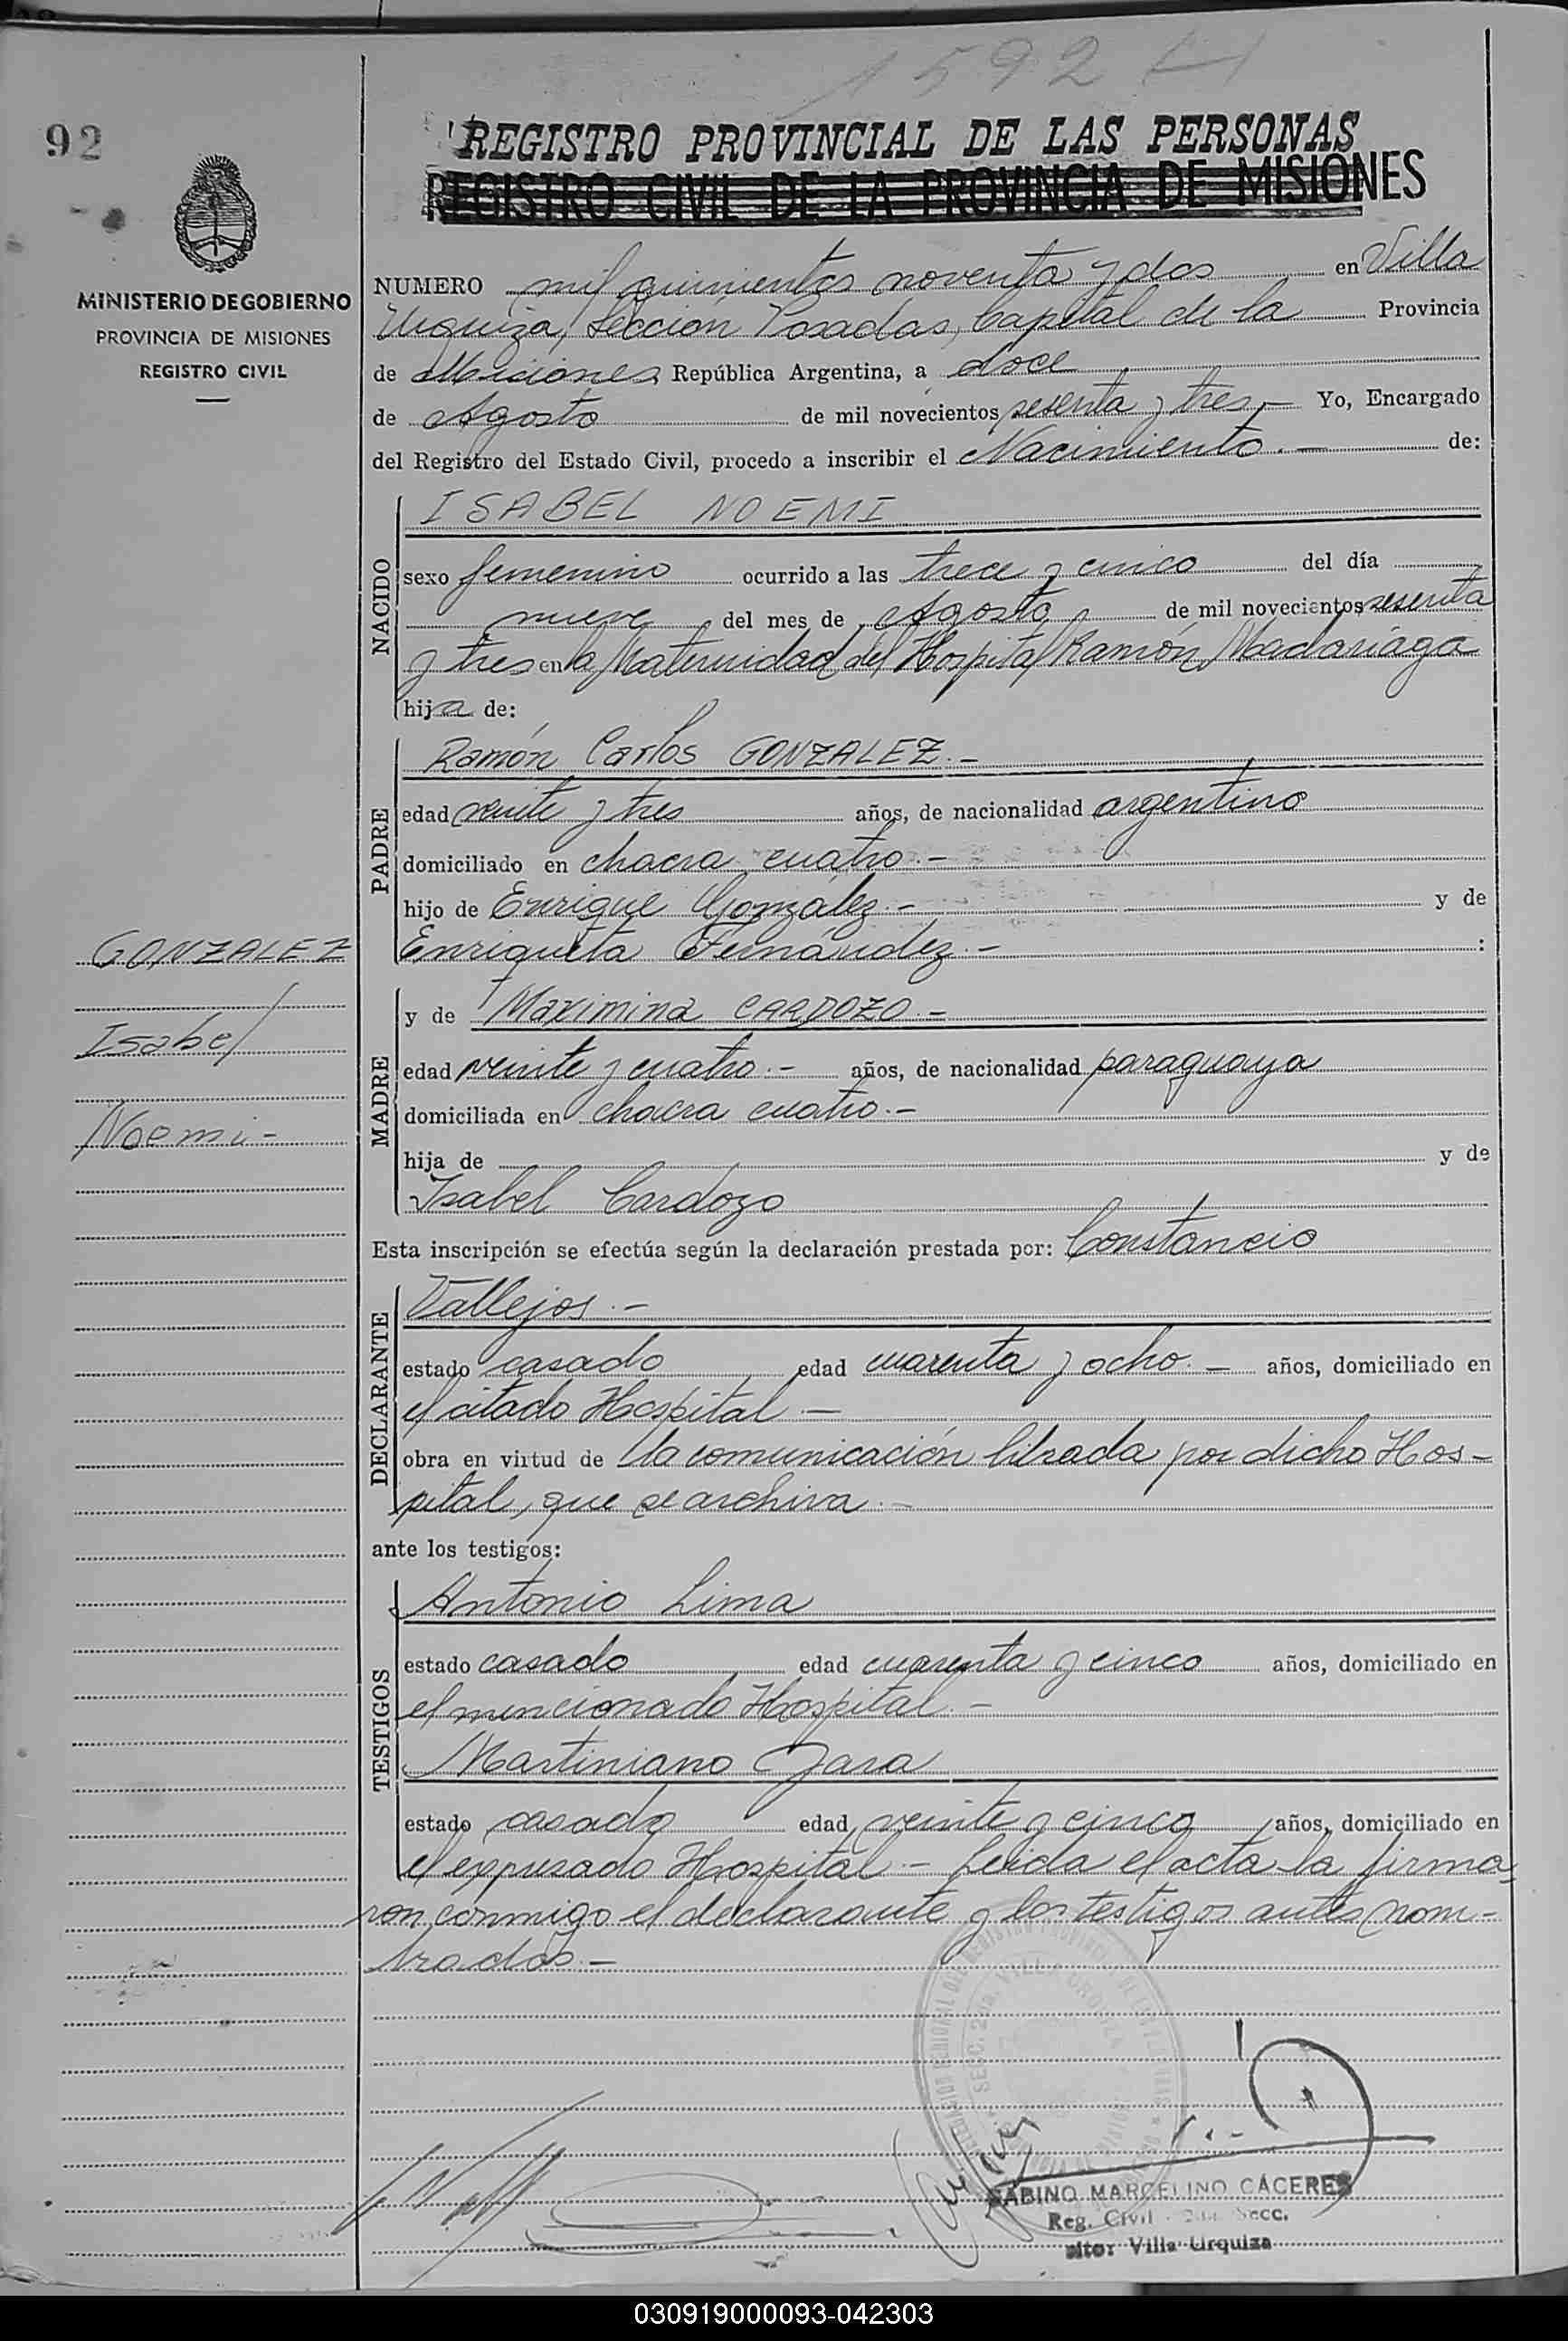 1592
92
REGISTRO PROVINCIAL DE LAS PERSONAS
REGISTRO CIVIL DE LA PROVINCIA DE MISIONES
MINISTERIO DE GOBIERNO
PROVINCIA DE MISIONES
REGISTRO CIVIL
NUMERO mil quinientos noventa y dos en Villa
Urquiza, Sección Posadas, Capital de la Provincia
de Misiones República Argentina, a doce
de Agosto de mil novecientos sesenta y tres.- Yo, Encargado
del Registro del Estado Civil, procedo a inscribir el Nacimiento.- de:
NACIDO
ISABEL NOEMI
sexo femenino ocurrido a las trece y cinco del día
nueve del mes de Agosto de mil novecientos sesenta
y tres en la Maternidad del Hospital Ramón Madariaga
hija de:
PADRE
Ramón Carlos GONZALEZ.-
edad veinte y tres años, de nacionalidad argentino
domiciliado en chacra cuatro.-
hijo de Enrique González.- y de
Enriqueta Fernández.- :
GONZALEZ
Isabel
Noemi-
MADRE
y de Maximina CARDOZO.-
edad veinte y cuatro.- años, de nacionalidad paraguaya
domiciliada en chacra cuatro.-
hija de y de
Isabel Cardozo
Esta inscripción se efectúa según la declaración prestada por: Constancio
DECLARANTE
Vallejos.-
estado casado edad cuarenta y ocho.- años, domiciliado en
el citado Hospital.-
obra en virtud de la comunicación librada por dicho Hos-
pital, que se archiva.-
ante los testigos:
TESTIGOS
Antonio Lima
estado casado edad cuarenta y cinco años, domiciliado en
el mencionado Hospital.-
Martiniano Jara
estado casado edad veinte y cinco años, domiciliado en
el expresado Hospital.- Leida el acta la firma
ron conmigo el declarante y los testigos antes nom-
brados.-
SABINO MARCELINO CÁCERES
Reg. Civil Secc.
Villa Urquiza
030919000093-042303